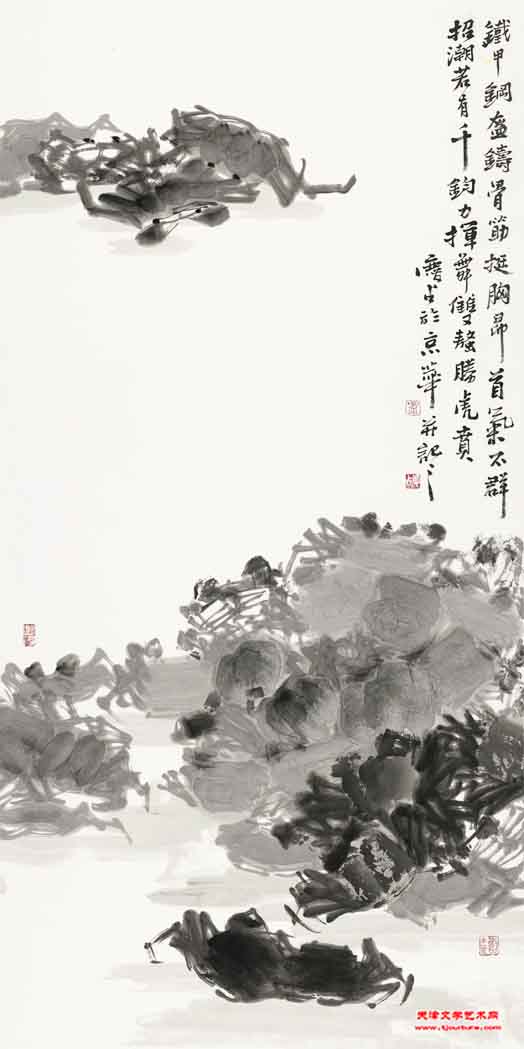 鐵甲鋼盔鑄骨筋挺胸昂首氣不群
招潮若有千鈞力揮舞雙螯勝虎賁
於京華並記之
天津文学艺术网
www.tjculture.com